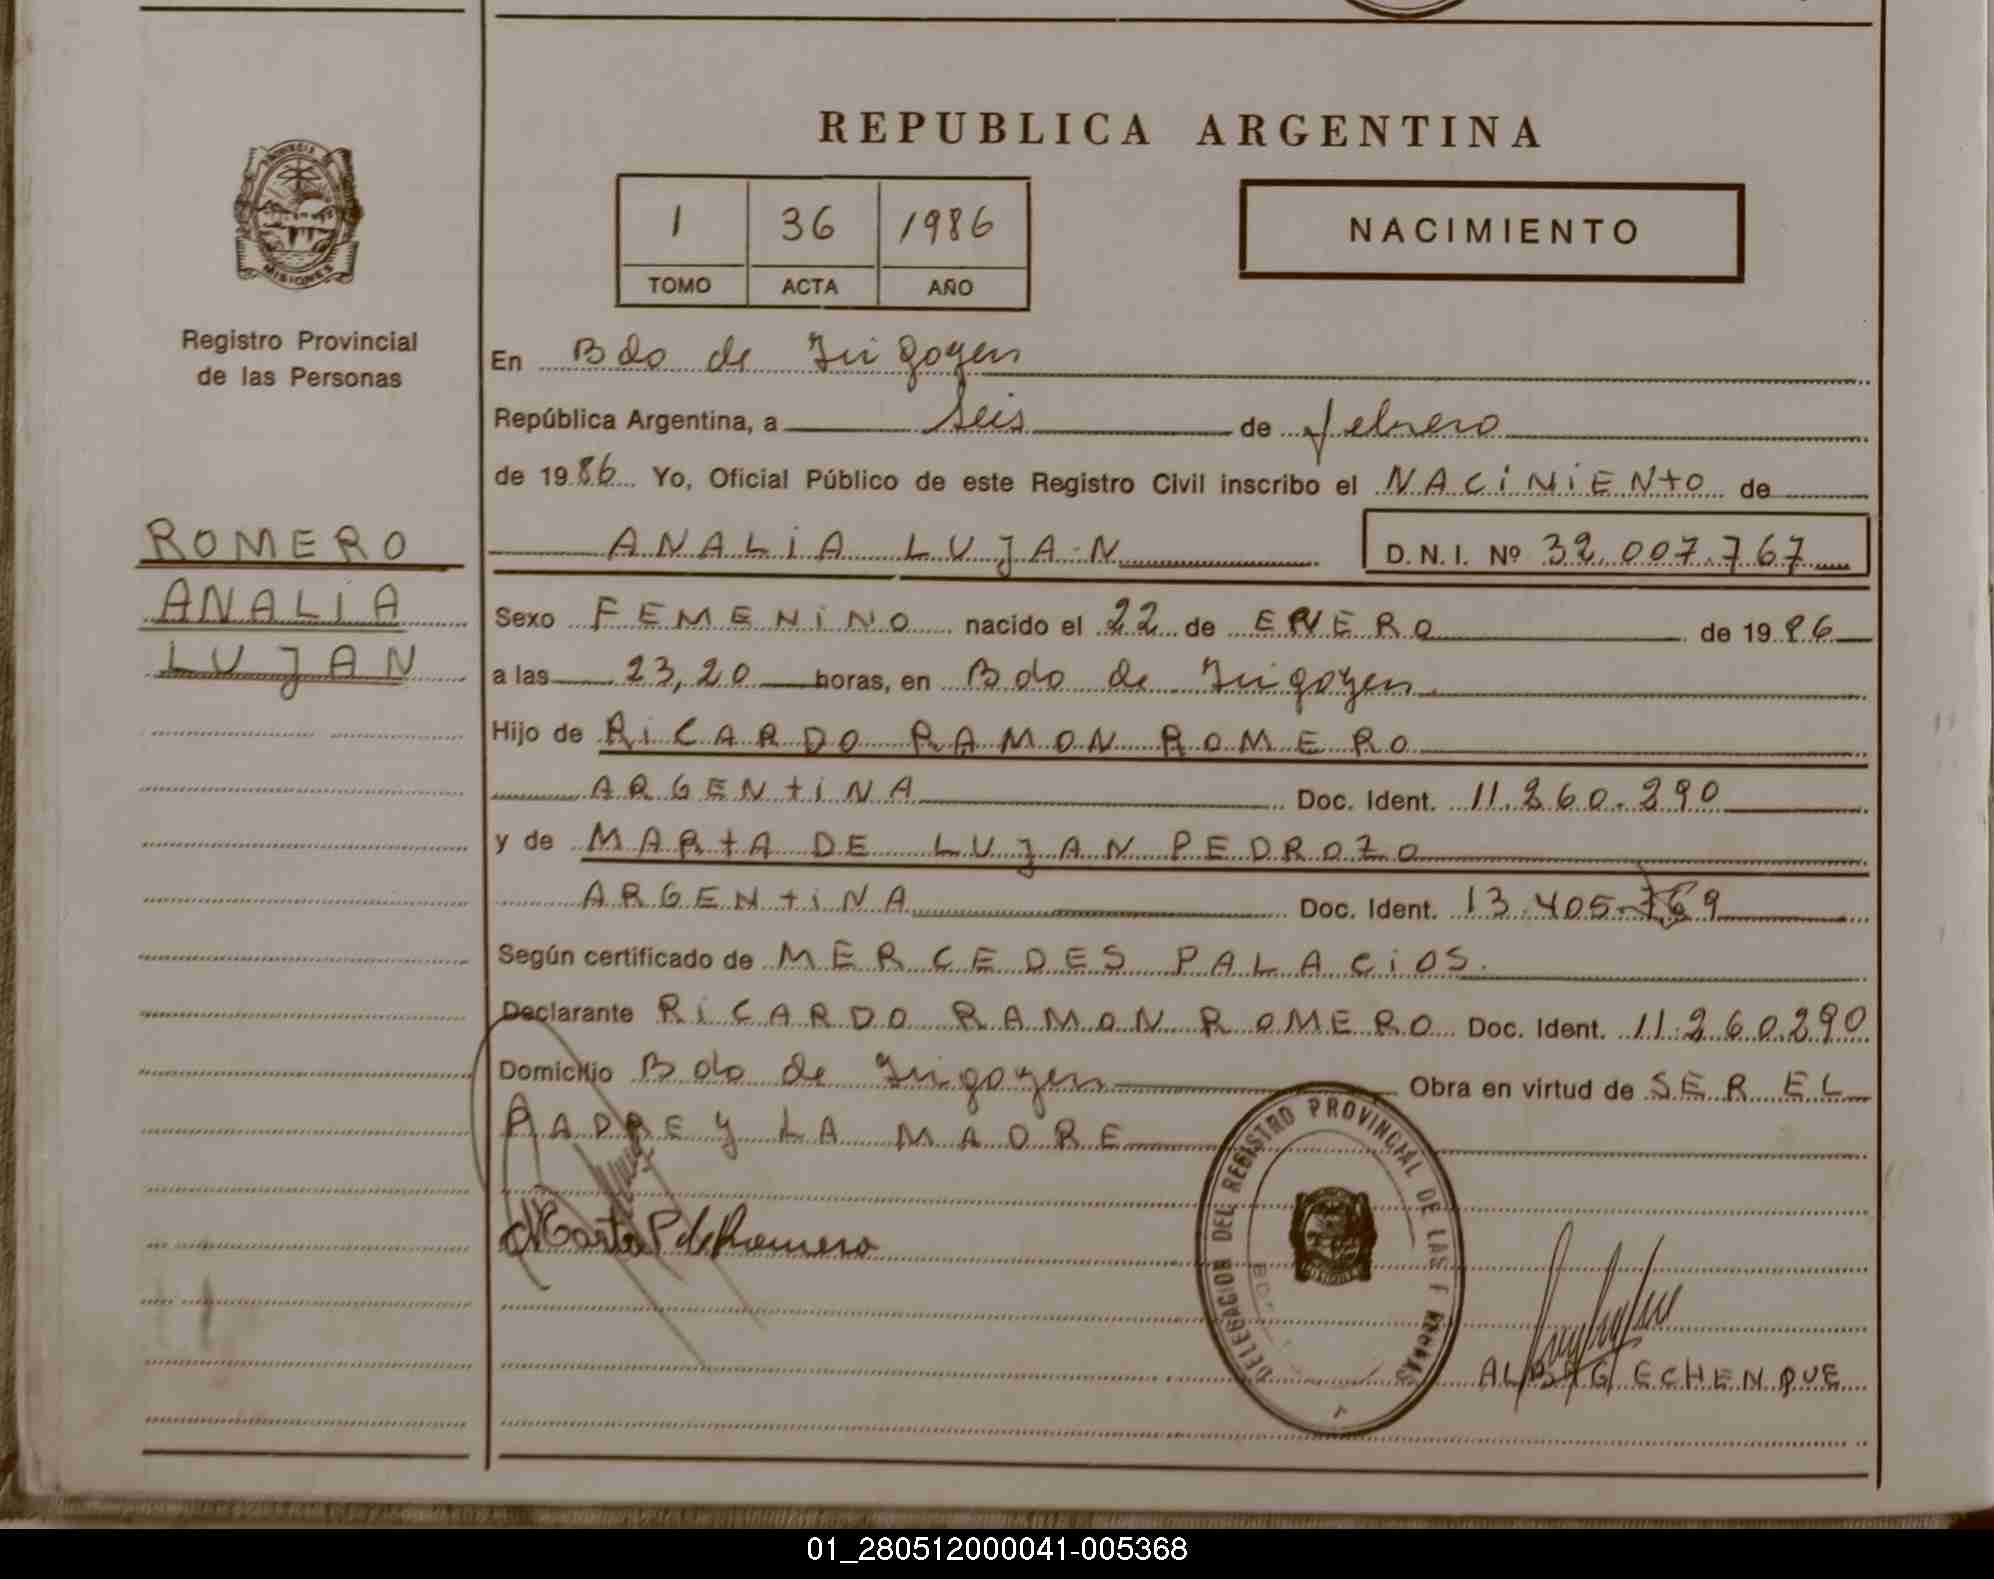 REPUBLICA ARGENTINA
1 36 1986
TOMO ACTA AÑO
NACIMIENTO
PROVINCIA DE MISIONES
Registro Provincial
de las Personas
ROMERO
ANALIA
LUJAN
En Bdo de Irigoyen
República Argentina, a seis de febrero
de 1986 Yo, Oficial Público de este Registro Civil inscribo el NACIMIENTO de
ANALIA LUJAN D.N.I. Nº 32.007.767
Sexo FEMENINO nacido el 22 de ENERO de 1986
a las 23,20 horas, en Bdo de Irigoyen
Hijo de RICARDO RAMON ROMERO
ARGENTINA Doc. Ident. 11.260.290
y de MARTA DE LUJAN PEDROZO
ARGENTINA Doc. Ident. 13.405.769
Según certificado de MERCEDES PALACIOS.
Declarante RICARDO RAMON ROMERO Doc. Ident. 11.260.290
Domicilio Bdo de Irigoyen Obra en virtud de SER EL
PADRE Y LA MADRE
Marta P de Romero
DELEGACION DEL REGISTRO PROVINCIAL DE LAS
ALBA G ECHENQUE
01_280512000041-005368